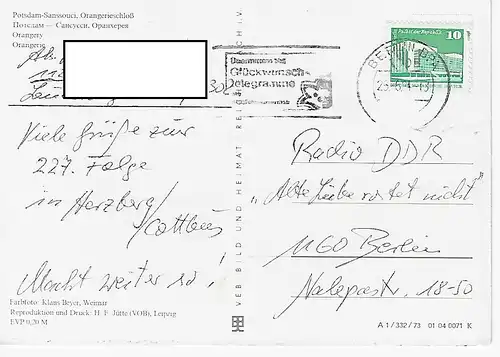 Potsdam-Sanssouci, Orangerieschloß
Потсдам — Сансусси, Оранжерея
Orangery
Orangerie
Abs.
30
Viele Grüße zur
227. Folge
in Herzberg/
Cottbus
Macht weiter so!
Farbfoto: Klaus Beyer, Weimar
Reproduktion und Druck: H. F. Jütte (VOB), Leipzig
EVP 0,20 M
VEB BILD UND HEIMAT REICHENBACH I. V.
Glückwunsch-
Telegramme
BERLIN
10
Palast der Republik
Radio DDR
„Alte Liebe rostet nicht"
1160 Berlin
Nalepastr. 18-50
A 1 / 332 / 73 01 04 0071 K